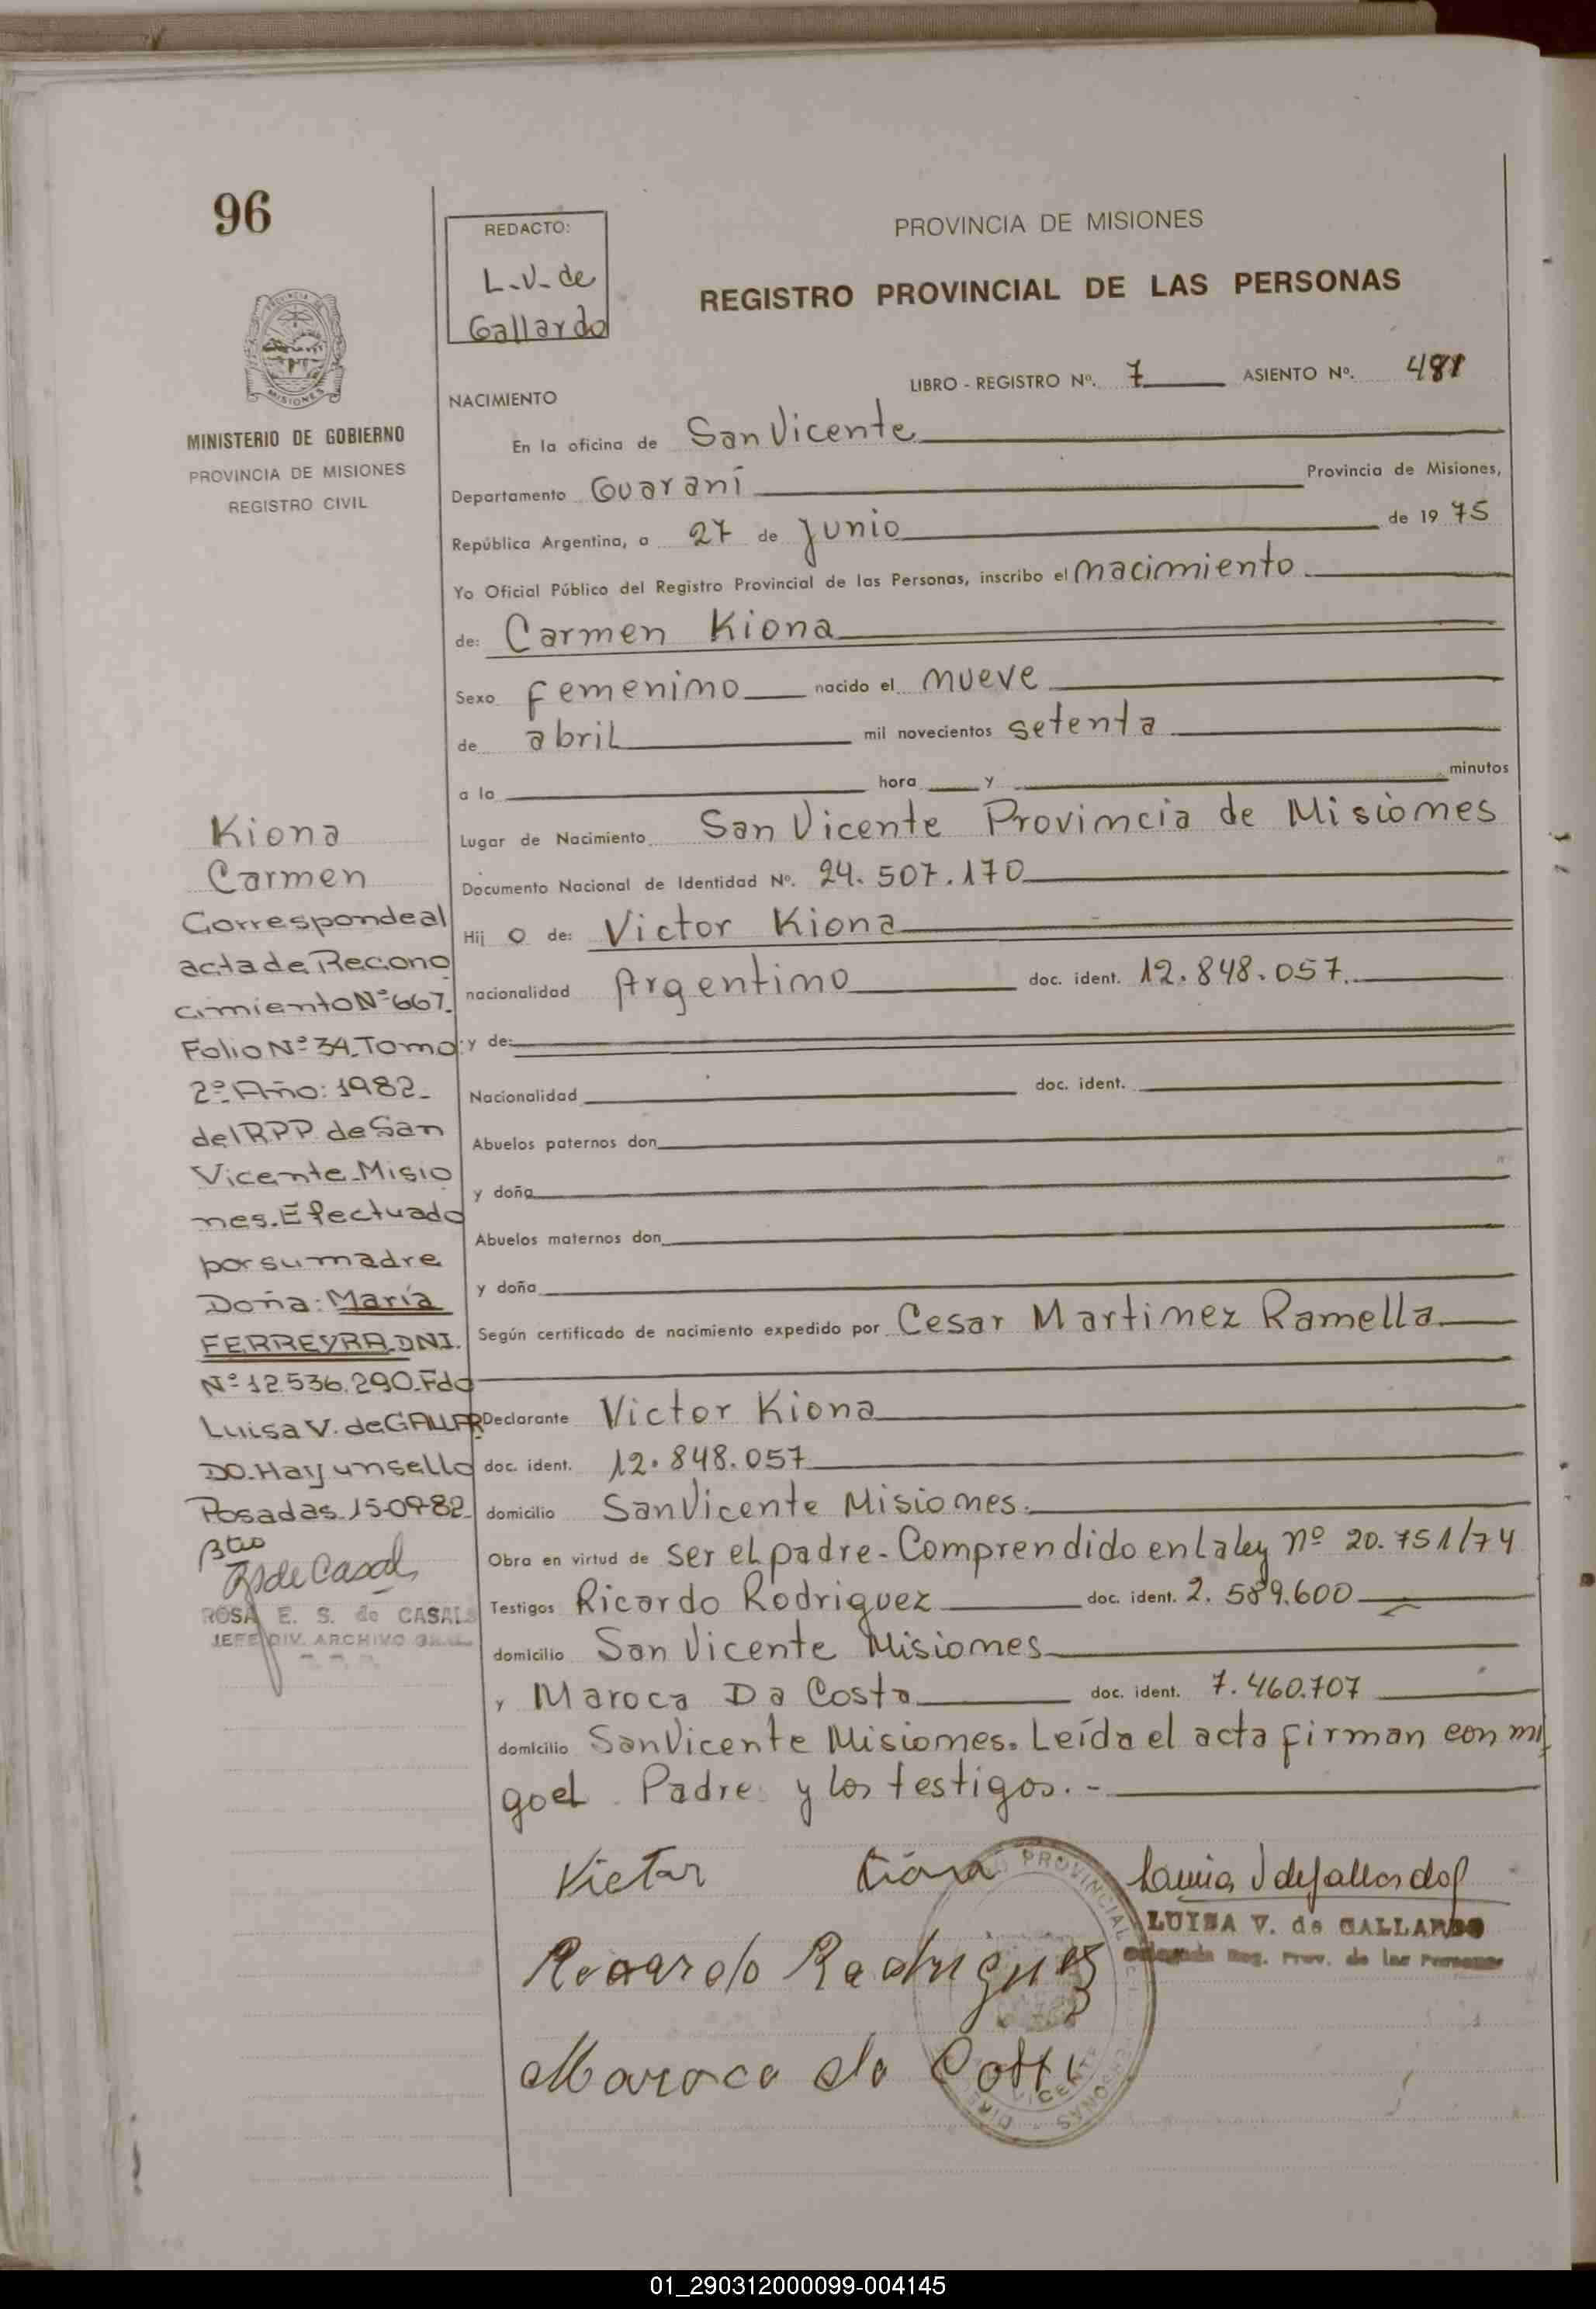 96
REDACTO:
L.V. de
Gallardo
PROVINCIA DE MISIONES
REGISTRO PROVINCIAL DE LAS PERSONAS
MINISTERIO DE GOBIERNO
PROVINCIA DE MISIONES
REGISTRO CIVIL
LIBRO - REGISTRO Nº. 7 ASIENTO Nº. 481
NACIMIENTO
En la oficina de San Vicente
Departamento Guaraní Provincia de Misiones,
República Argentina, a 27 de Junio de 1975
Yo Oficial Público del Registro Provincial de las Personas, inscribo el nacimiento
de: Carmen Kiona
Sexo femenino nacido el nueve
de abril mil novecientos setenta
a la hora y minutos
Lugar de Nacimiento San Vicente Provincia de Misiones
Documento Nacional de Identidad Nº. 24.507.170
Hij o de: Victor Kiona
nacionalidad Argentino doc. ident. 12.848.057.
y de:
Nacionalidad doc. ident.
Abuelos paternos don
y doña
Abuelos maternos don
y doña
Según certificado de nacimiento expedido por Cesar Martinez Ramella
Declarante Victor Kiona
doc. ident. 12.848.057
domicilio San Vicente Misiones.
Obra en virtud de ser el padre. Comprendido en la ley nº 20.751/74
Testigos Ricardo Rodriguez doc. ident. 2.589.600
domicilio San Vicente Misiones
y Maroca Da Costa doc. ident. 7.460.707
domicilio San Vicente Misiones. Leída el acta firman con mi
go el Padre y los testigos.-
Kiona
Carmen
Corresponde al
acta de Recono
cimiento Nº 667.
Folio Nº 34. Tomo:
2º Año: 1982.
del R.P.P. de San
Vicente. Misio
nes. Efectuado
por su madre
Doña: María
FERREYRA DNI.
Nº 12.536.290. Fdo
Luisa V. de GALLAR
DO. Hay un sello
Posadas. 15-09-82.
ROSA E. S. de CASALS
JEFE DIV. ARCHIVO GRAL.
Victor Kiona
Ricardo Rodriguez
Maroca da Costa
LUISA V. de GALLARDO
Delegada Reg. Prov. de las Personas
01_290312000099-004145